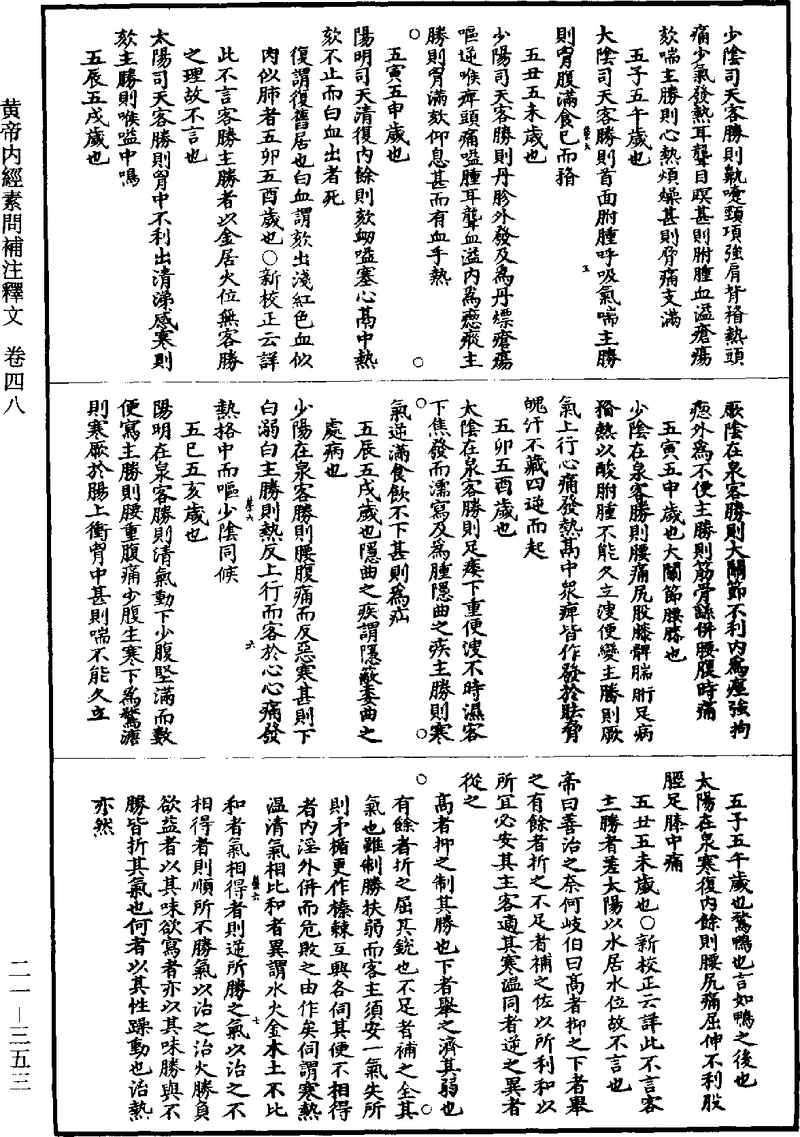 少陰司天客勝則鼽嚏頸項強肩背瞀熱頭
痛少氣發熱耳聾目瞑甚則胕腫血溢瘡瘍
欬喘主勝則心熱煩燥甚則脅痛支滿
五子五午歲也
太陰司天客勝則首面胕腫呼吸氣喘主勝
則胷腹滿食已而瞀
五丑五未歲也
少陽司天客勝則丹胗外發及為丹熛瘡瘍
嘔逆喉痹頭痛嗌腫耳聾血溢内為瘛瘲主
勝則胷滿欬仰息甚而有血手熱
五寅五申歲也
陽明司天清復内餘則欬衂嗌塞心鬲中熱
欬不止而白血出者死
復謂復舊居也白血謂欬出淺紅色血似
肉似肺者五卯五酉歲也○新校正云詳
此不言客勝主勝者以金居火位無客勝
之理故不言也
太陽司天客勝則胷中不利出清涕感寒則
欬主勝則喉嗌中鳴
五辰五戌歲也
厥陰在泉客勝則大關節不利内為痙強拘
瘛外為不便主勝則筋骨繇併腰腹時痛
五寅五申歲也大關節腰膝也
少陰在泉客勝則腰痛尻股膝髀腨䯒足病
瞀熱以酸胕腫不能久立溲便變主勝則厥
氣上行心痛發熱鬲中衆痹皆作發於胠脅
魄汗不藏四逆而起
五卯五酉歲也
太陰在泉客勝則足痿下重便溲不時濕客
下焦發而濡寫及為腫隱曲之疾主勝則寒
氣逆滿食飲不下甚則為疝
五辰五戌歲也隱曲之疾謂隱蔽委曲之
處病也
少陽在泉客勝則腰腹痛而反惡寒甚則下
白溺白主勝則熱反上行而客於心心痛發
熱格中而嘔少陰同候
五巳五亥歲也
陽明在泉客勝則清氣動下少腹堅滿而數
便寫主勝則腰重腹痛少腹生寒下為鶩溏
則寒厥於腸上衝胷中甚則喘不能久立
五子五午歲也鶩鴨也言如鴨之後也
太陽在泉寒復内餘則腰尻痛屈伸不利股
脛足膝中痛
五丑五未歲也○新校正云詳此不言客
主勝者蓋太陽以水居水位故不言也
帝曰善治之奈何岐伯曰高者抑之下者舉
之有餘者折之不足者補之佐以所利和以
所宜必安其主客適其寒温同者逆之異者
從之
高者抑之制其勝也下者舉之濟其弱也
有餘者折之屈其銳也不足者補之全其
氣也雖制勝扶弱而客主須安一氣失所
則矛楯更作榛棘互興各伺其便不相得
者内淫外併而危敗之由作矣同謂寒熱
温清氣相比和者異謂水火金木土不比
和者氣相得者則逆所勝之氣以治之不
相得者則順所不勝氣以治之治火勝負
欲益者以其味欲寫者亦以其味勝與不
勝皆折其氣也何者以其性躁動也治熱
亦然
黄帝内經素問補注釋文 卷四八
二一—三五三